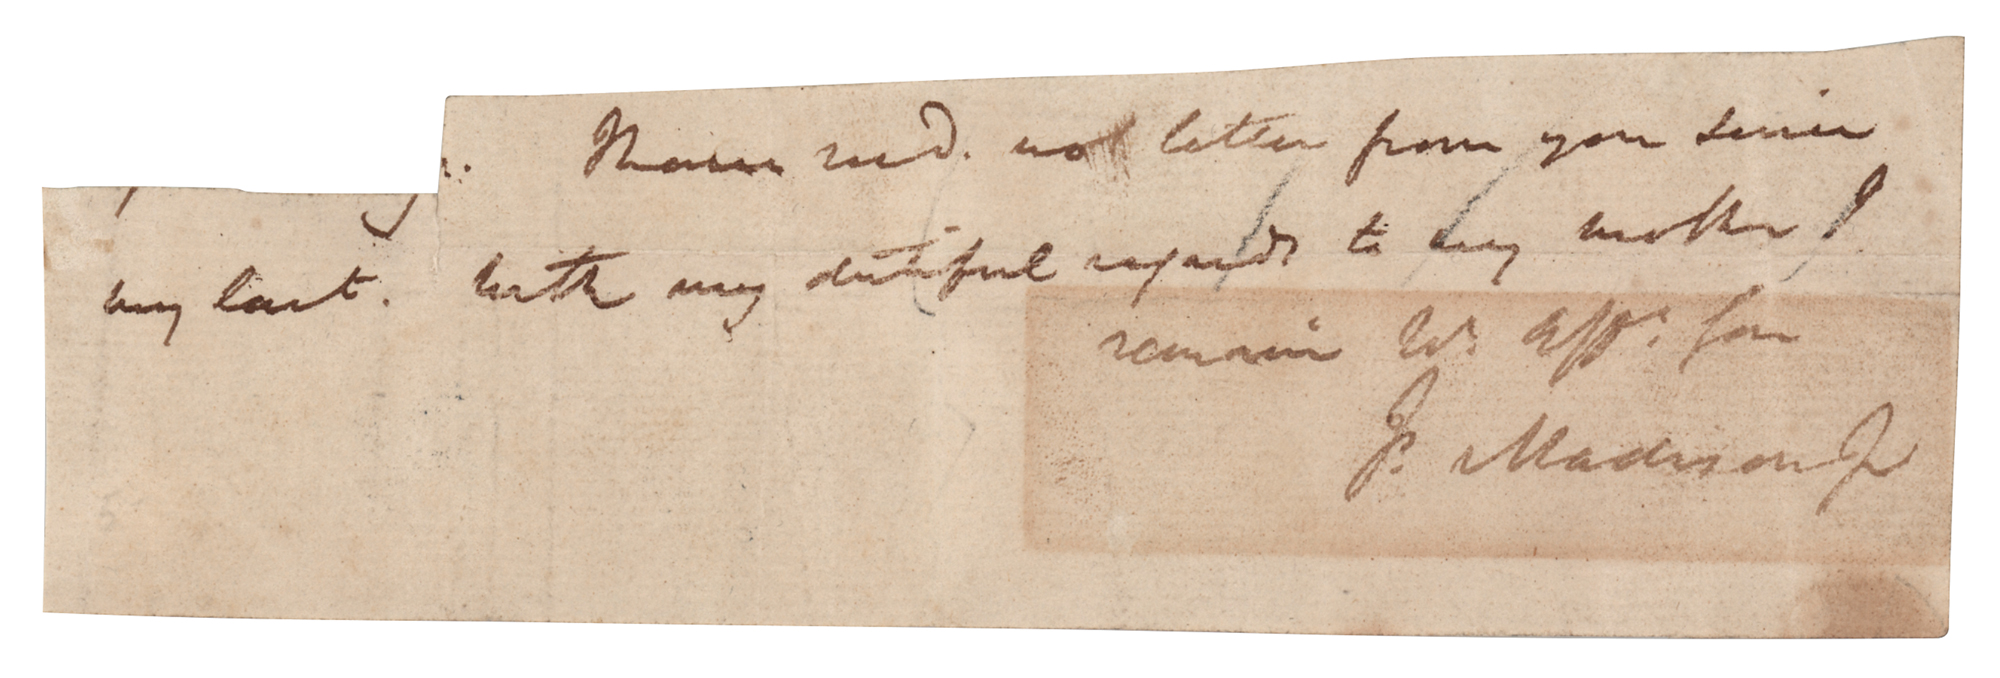 I have recd. no letter from you since
my last. With my dutiful regards to my mother I
remain Yr. Affe. Son
Js. Madison Jr